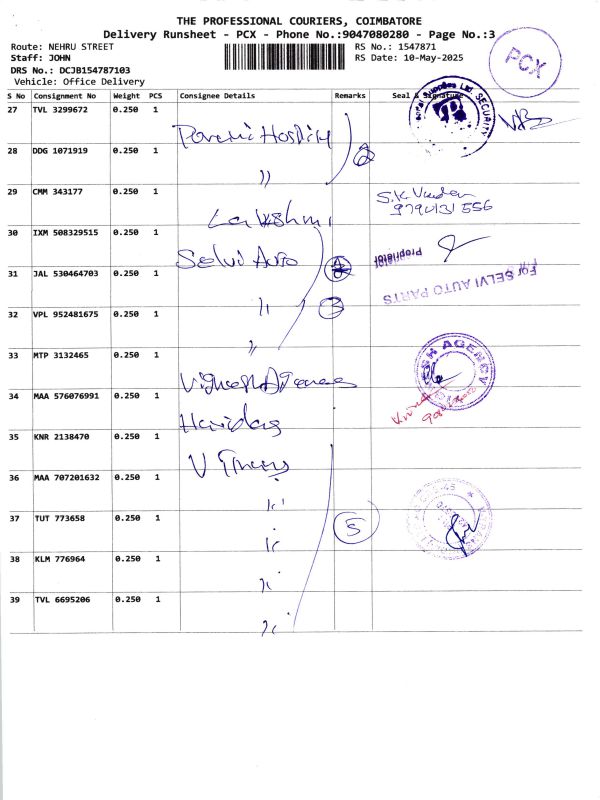 THE PROFESSIONAL COURIERS, COIMBATORE
Delivery Runsheet - PCX - Phone No.:9047080280 - Page No.:3
Route: NEHRU STREET
RS No.: 1547871
Staff: JOHN
RS Date: 10-May-2025
DRS No.: DCJB154787103
Vehicle: Office Delivery
PCX
S No Consignment No Weight PCS Consignee Details Remarks Seal & Signature
SECURITY
27 TVL 3299672 0.250 1
28 DDG 1071919 0.250 1 "
2
29 CMM 343177 0.250 1 Lakshmi
S.K.
30 IXM 508329515 0.250 1 Selvi Auto
Proprietor
31 JAL 530464703 0.250 1 "
For SELVI AUTO PARTS
3
32 VPL 952481675 0.250 1 "
33 MTP 3132465 0.250 1
AGENCY
34 MAA 576076991 0.250 1 Haridas
35 KNR 2138470 0.250 1
36 MAA 707201632 0.250 1 "
37 TUT 773658 0.250 1 "
5
38 KLM 776964 0.250 1 "
39 TVL 6695206 0.250 1 "